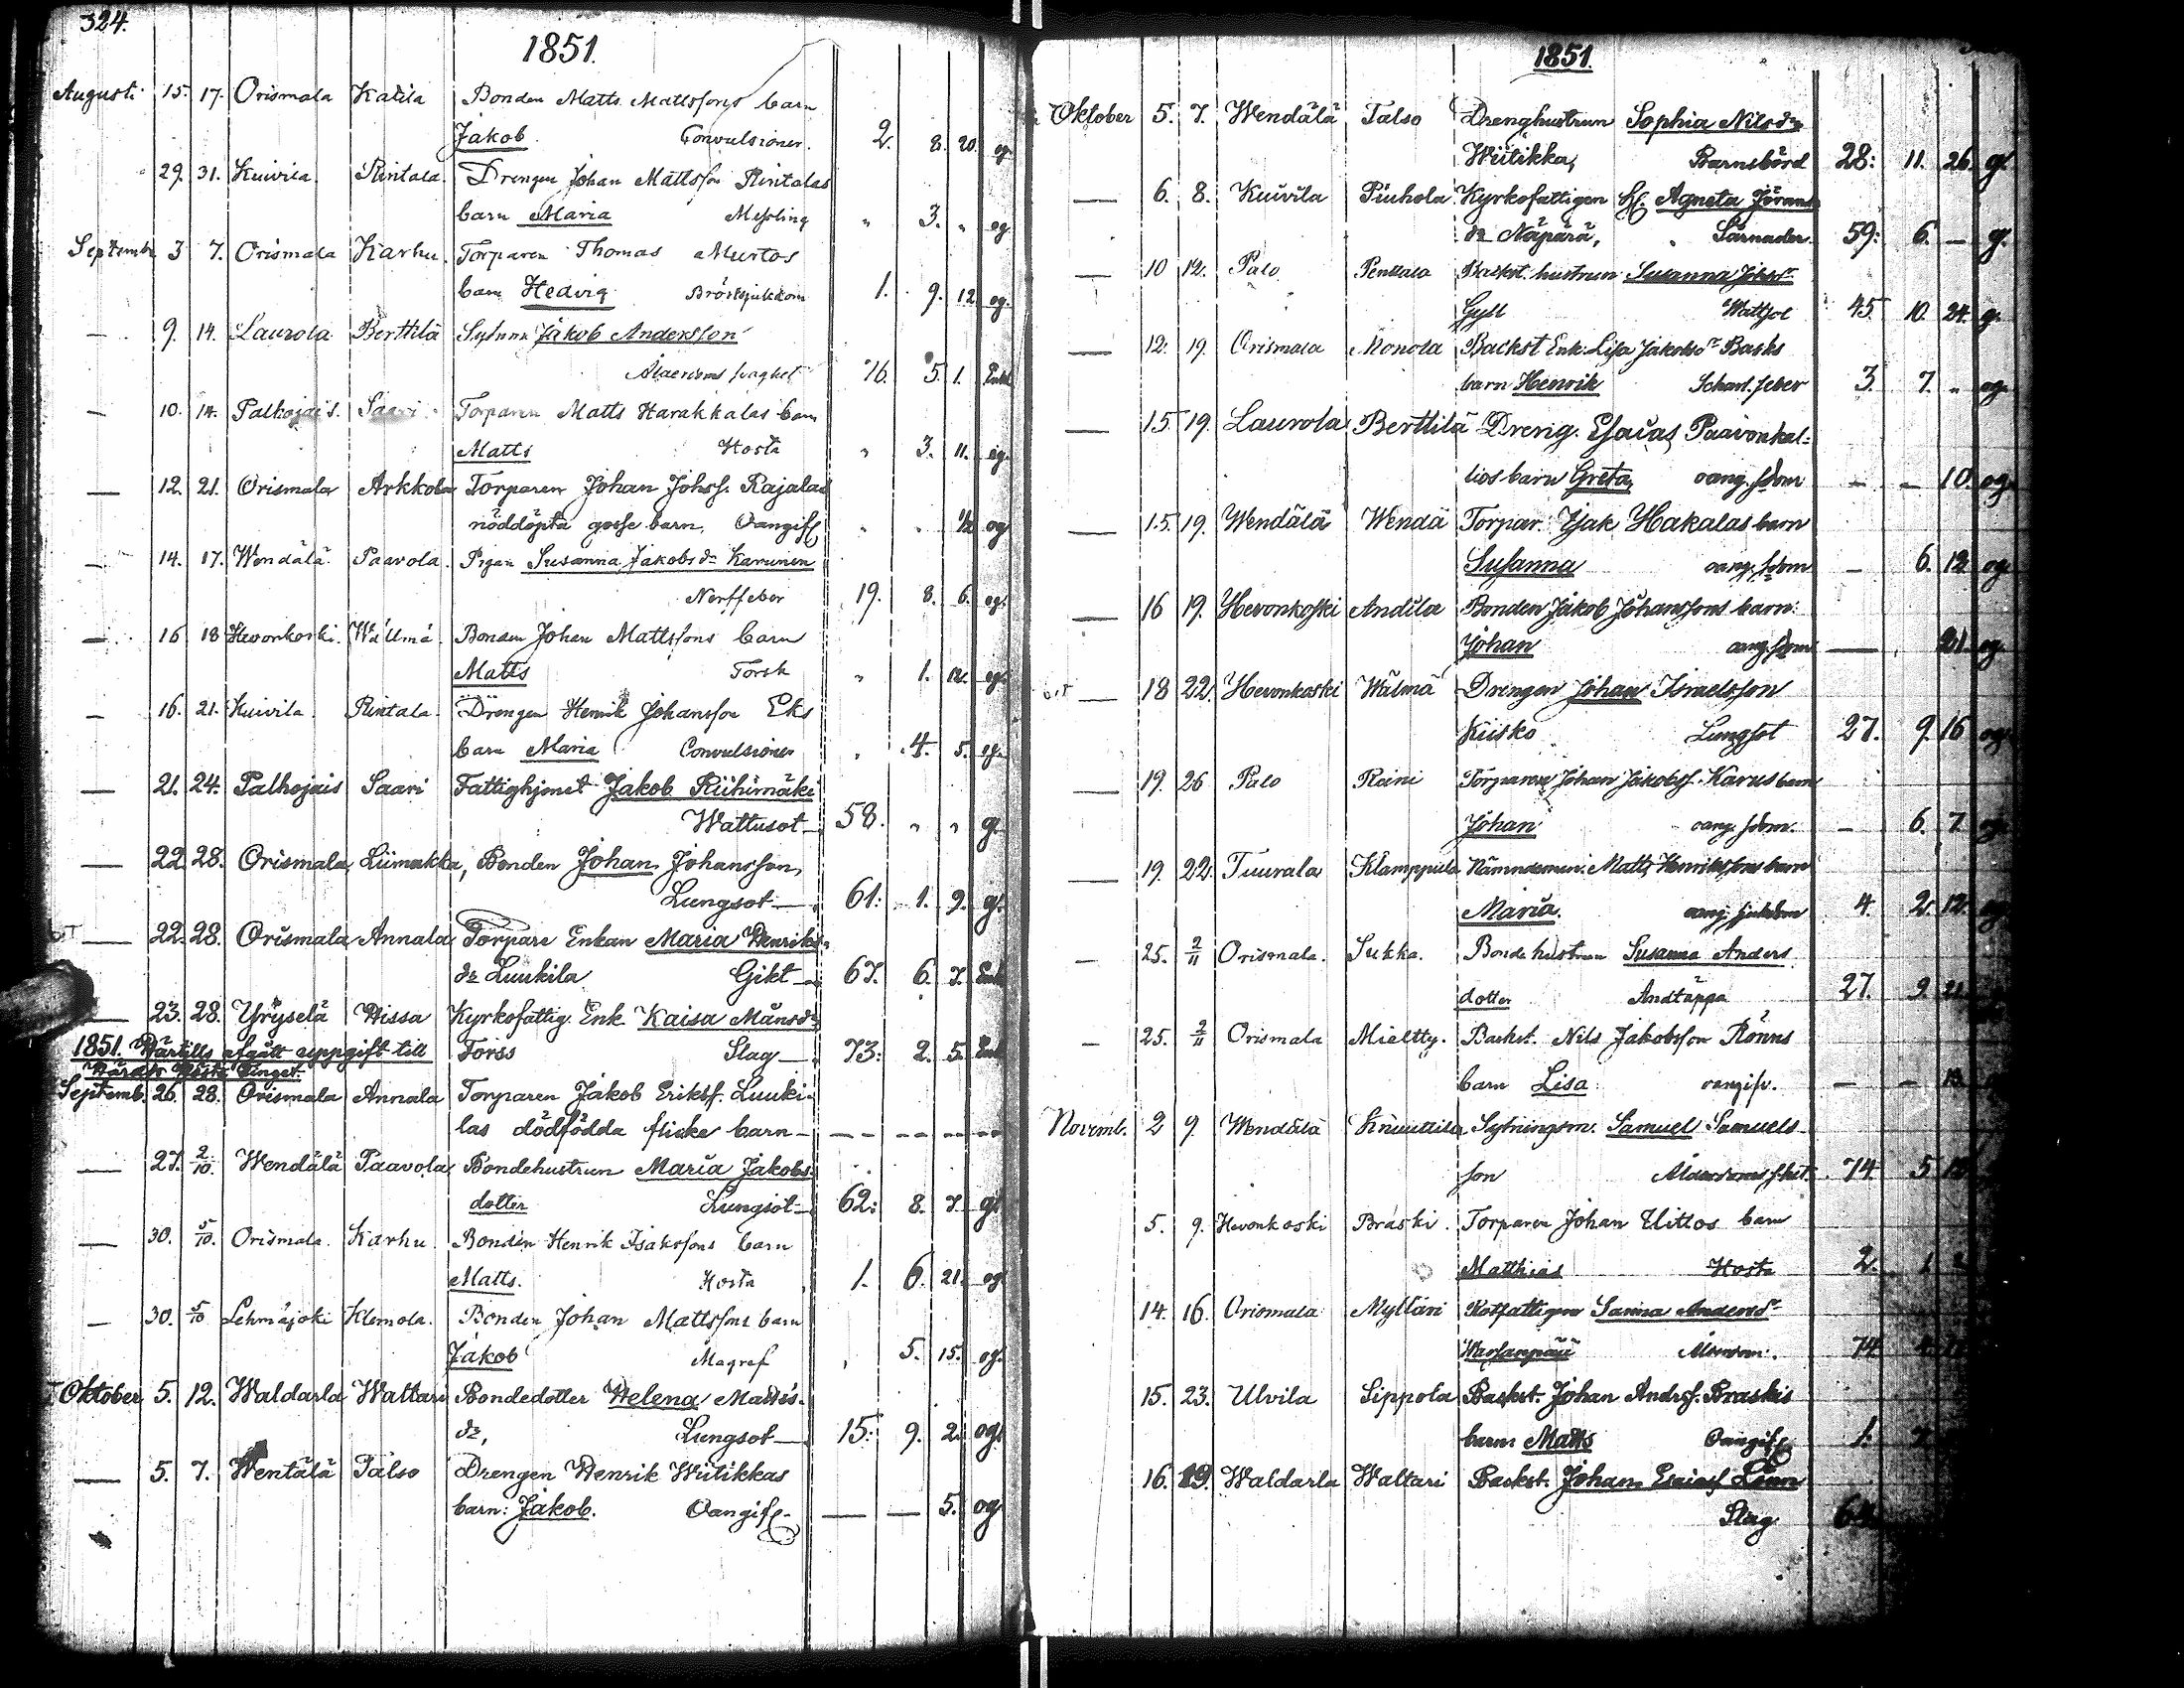 324.
1851.
Augusti 15. 17. Orismala Katila Bonden Matts Mattssons barn
Jakob. Convulsioner. 2. 8. 20. og.
29. 31. Kuivila. Rintala. Drengen Johan Mattsson Rintalas
barn Maria Messling " 3. " og
Septemb 3 7. Orismala Karhu. Torparen Thomas Murtos
barn Hedvig Bröstsjukdom 1. 9. 12 og.
— 9. 14. Laurola Berttilä Sytnm Jakob Andersson
Ålderdoms svaghet 76. 5. 1. Enkl
— 10. 14. Palhojais. Saari. Torparen Matts Harakkalas barn
Matts Hosta " 3. 11. og.
— 12. 21. Orismala Arkkola Torparen Johan Johss. Rajalas
nöddöpta gosse barn, Oangifv " " 1/2 og
— 14. 17. Wendälä Paavola. Pigan Susanna Jakobsdr Karunen
Nerffeber 19. 8. 6. og.
— 16 18 Hevonkoski. Wälimä. Bonden Johan Mattssons barn
Matts Torsk " 1. 12. og.
— 16. 21. Kuivila. Rintala. Drengen Henrik Johansson Eks
barn Maria Convulsioner " 4. 5. og.
— 21. 24. Palhojais Saari Fattighjonet Jakob Riihimäki
Wattusot 58. " " g.
— 22. 28. Orismala, Liimakka, Bonden Johan Johansson,
Lungsot 61: 1. 9. g.
— 22. 28. Orismala Annala Torpare Enkan Maria Henriks-
dr Luukila Gikt 67. 6. 7. Enk
— 23. 28. Yryselä Hissa Kyrkofattig. Enk. Kaisa Månsdr
1851. Härtills afgått uppgift till Torss Slag 73: 2. 5. Enk
Härads Höste Tinget.
Septemb. 26. 28. Orismala Annala Torparen Jakob Erikss. Luuki-
las dödfödda flicke barn — — — —
— 27. 2/10. Wendälä Paavola Bondehustrun Maria Jakobs-
dotter Lungsot 62: 8. 7. g.
— 30. 5/10. Orismala. Karhu. Bonden Henrik Isakssons barn
Matts. Hosta 1. 6. 21. og
— 30. 5/10 Lehmäjoki Klemola. Bonden Johan Mattssons barn
Jakob Magref " 5. 15. og.
Oktober 5. 12. Waldarla Waltari Bondedotter Helena Matts-
dr, Lungsot 15: 9. 2. og.
— 5. 7. Wentälä Talso Drengen Henrik Wiitikkas
barn: Jakob. Oangifv. — — 5. og
1851.
Oktober 5. 7. Wendälä Talso Drenghustrun Sophia Nilsdr
Wiitikka, Barnsbörd 28: 11. 26. g.
— 6. 8. Kuivila Piuhola Kyrkofattigen H. Agneta Jörans
dr Näpärä, Särnader. 59: 6. — g.
— 10 12. Palo Penttala Backst. hustrun Susanna Johsdr
Gyll Wattsot 45. 10. 24. g.
— 12. 19. Orismala Monola Backst Enk. Lisa Jakobsdr Backs
barn Henrik Scharl. feber 3. 7. " og.
— 15. 19. Laurola Berttilä Dreng. Esaias Paavonkal-
lios barn Greta, oang. sdom — — 10. og
— 15. 19. Wendälä Wendä Torpar. Isak Hakalas barn
Susanna oang. sdom — 6. 12. og
— 16 19. Hevonkoski Andila Bonden Jakob Johanssons barn:
Johan oang. sdom — 21. og.
— 18 22. Hevonkoski Wälmä Drengen Johan Israelsson
Kiisko Lungsot 27. 9. 16 og
— 19. 26 Palo Reini Torparen Johan Jakobss. Karus barn
Johan oang. sdom. — 6. 7. og
— 19. 22. Tuurala Klamppila Nämndeman. Matts Henrikssons barn
Maria. oang. sjukdom 4. 2. 12.
— 25. 2/11 Orismala. Sukka. Bonde hustrun Susanna Anders
dotter Andtäppa 27. 9. 21.
— 25. 2/11 Orismala Mieltty. Backst. Nils Jakobsson Rönns
barn Lisa oangifv. — —
Novemb. 2 9. Wendälä Knuuttila Sytningsm. Samuel Samuels-
son Ålderdoms s.het. 74. 5
5. 9. Hevonkoski Braski. Torparen Johan Uittos barn
Matthias Hosta 2. 1.
14. 16. Orismala Myltäri Sanna Andersdr
74
15. 23. Ulvila Sippola Backst. Johan Andrs. Braskis
barn Matts Oangifv 1.
16. 19. Waldarla Waltari Backst. Johan Esaiass Löön
Slag